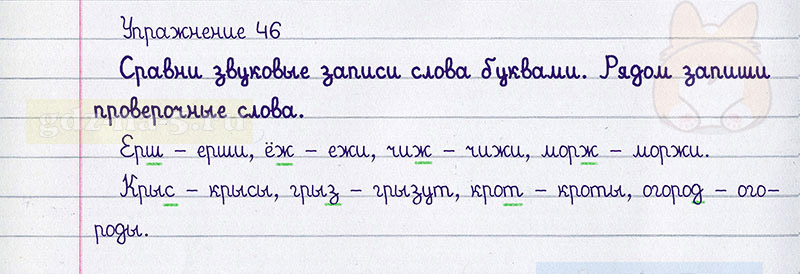 Упражнение 46
Сравни звуковые записи слова буквами. Рядом запиши
проверочные слова.
Ерш – ерши, ёж – ежи, чиж – чижи, морж – моржи.
Крыс – крысы, грыз – грызут, крот – кроты, огород – ого-
роды.